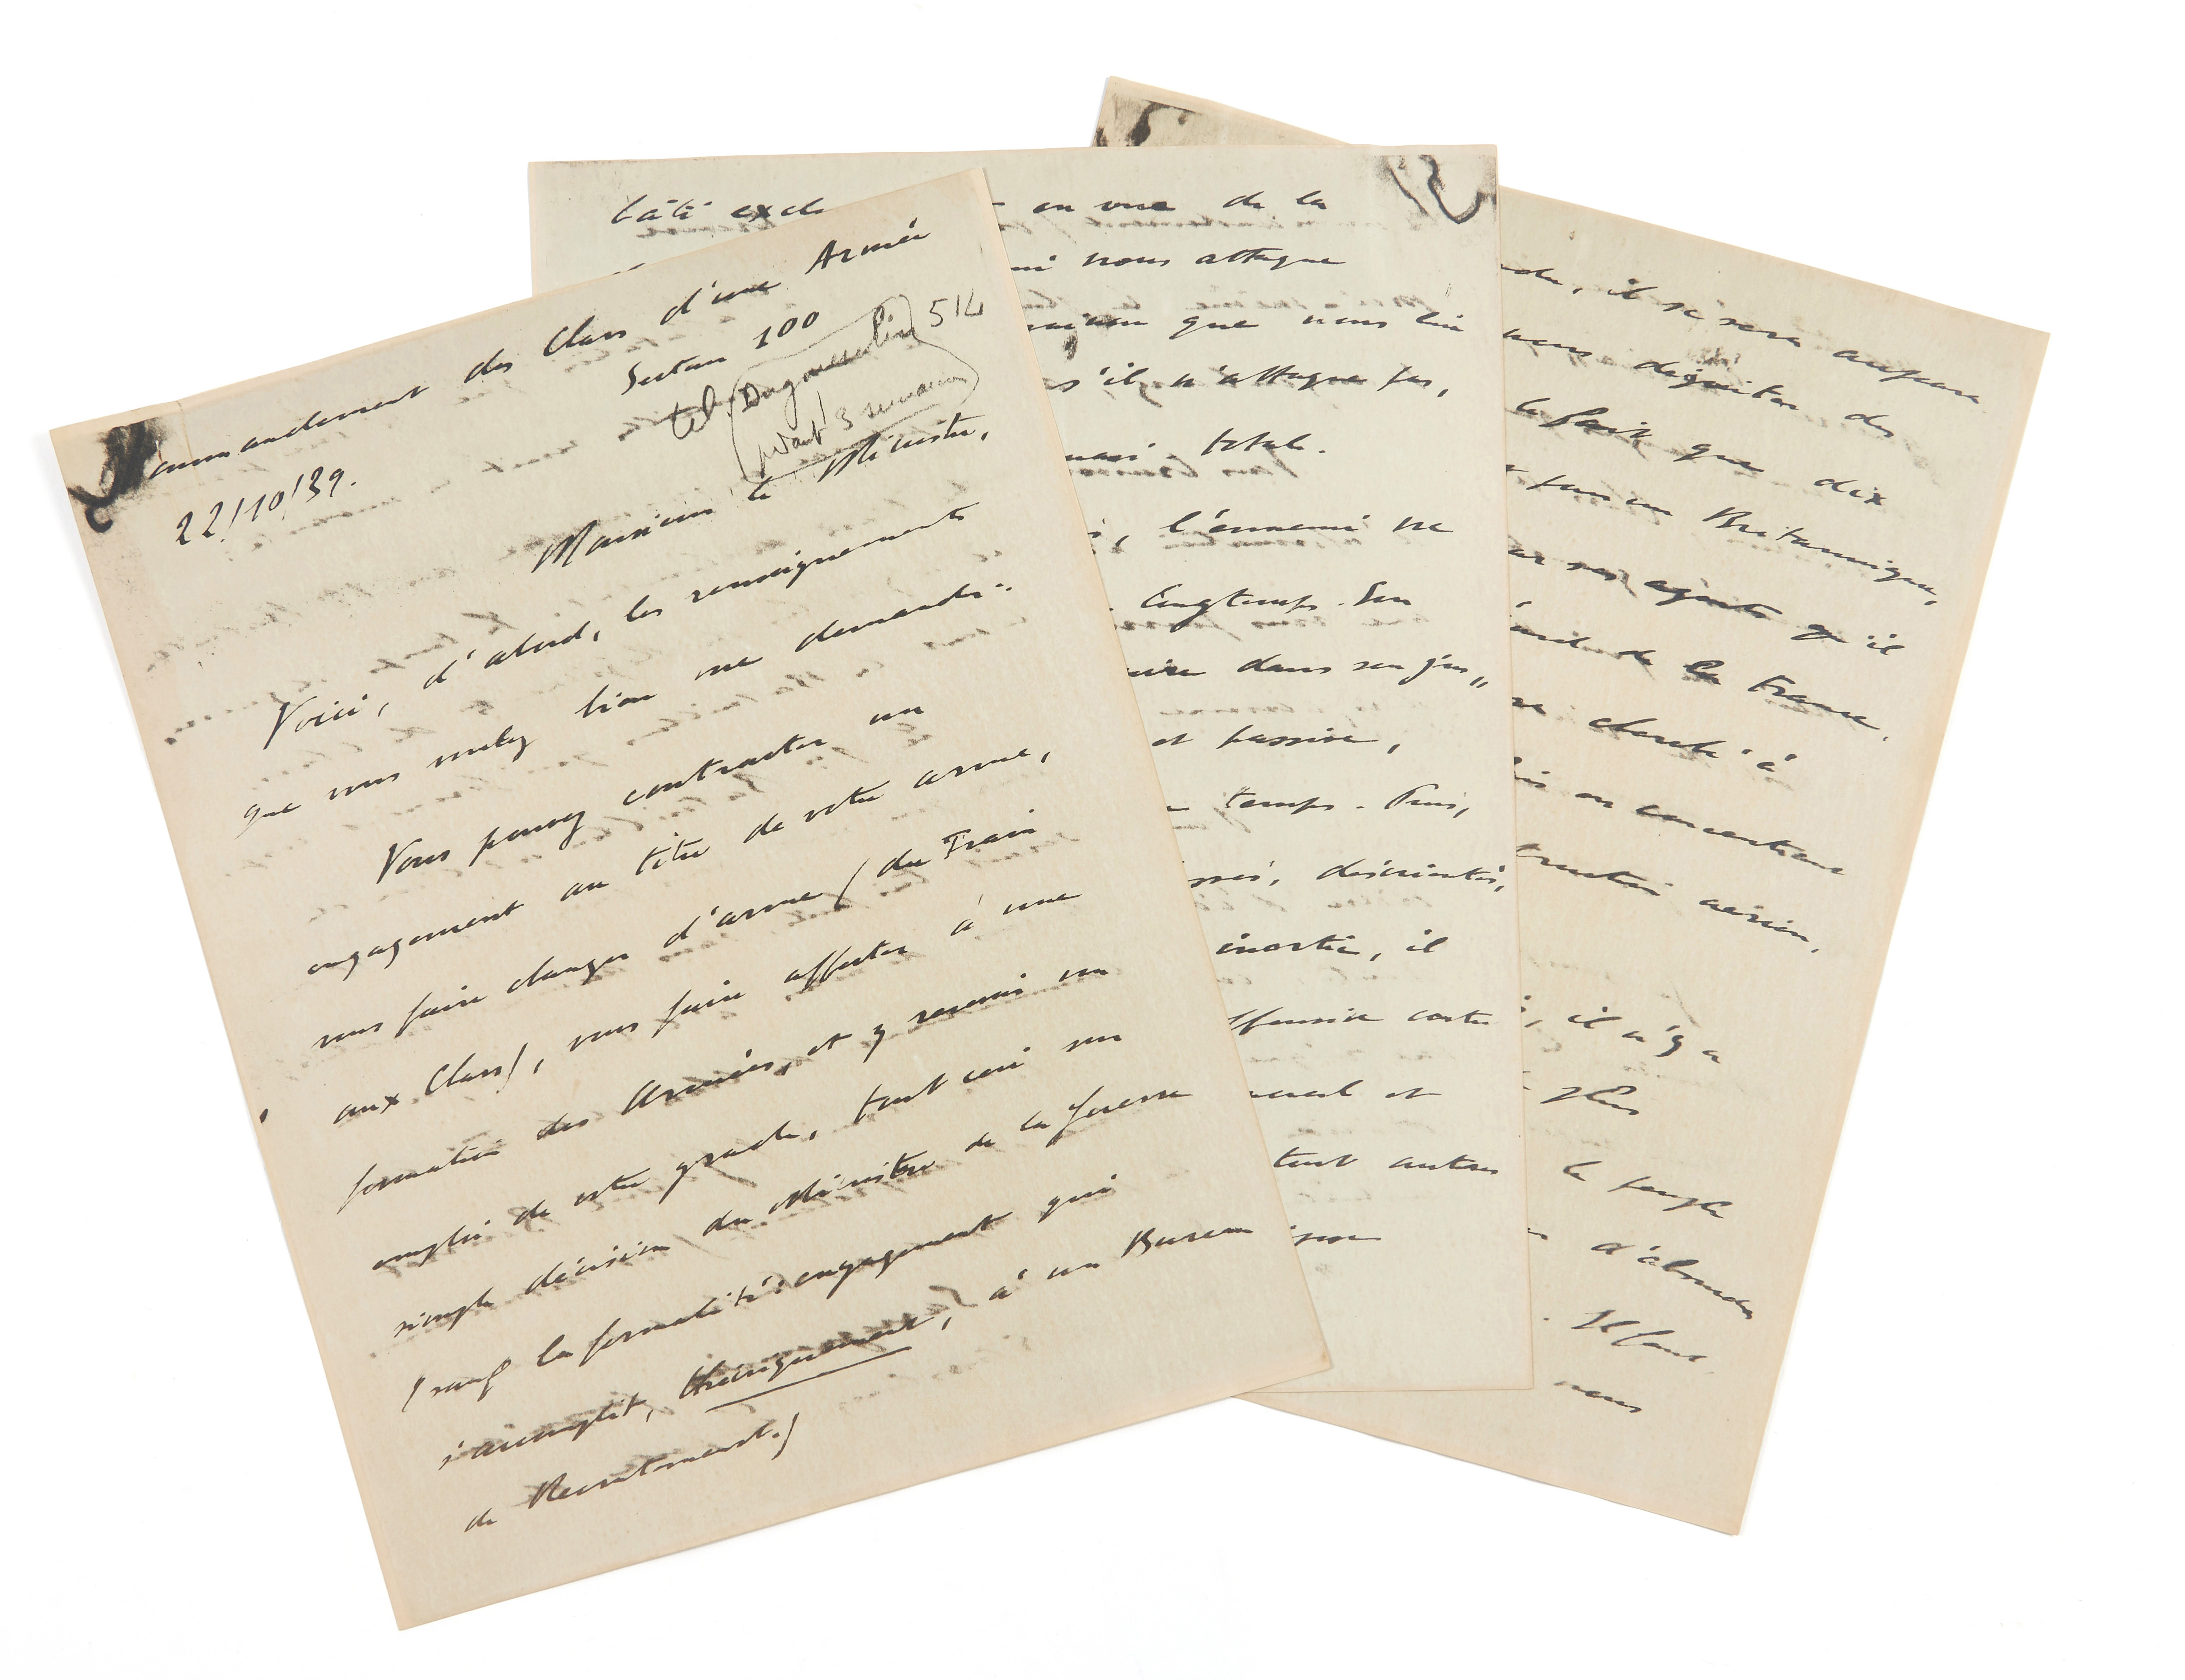 Commandement des Chars d'une Armée
Secteur 100
22/10/39.
tel Duguesclin 514
Monsieur le Ministre,
Voici, d'abord, les renseignements
que vous voulez bien me demander:
Vous pouvez contracter un
engagement au titre de votre arme,
vous faire changer d'arme (du Train
aux Chars), vous faire affecter à une
formation des Armées, et y recevoir un
emploi de votre grade, tout ceci sur
simple décision du Ministre de la Guerre
(sauf la formalité: engagement qui
s'accomplit, théoriquement, à un Bureau
de Recrutement.)
bâti en vue de la
nous attaque
que nous lui
s'il n'attaque pas,
quasi totale.
l'ennemi ne
longtemps. Son
dans son jeu,,
et passive,
temps. Puis,
désorientés,
inertie, il
offensive contre
moral et
tout autres
il se sera
dégoûter des
le fait que dix
Britannique,
par ses agents qu'il
de la France.
cherché à
en concertant
aérien.
il n'y a
plus
le peuple
d'abondon
Il faut
nous